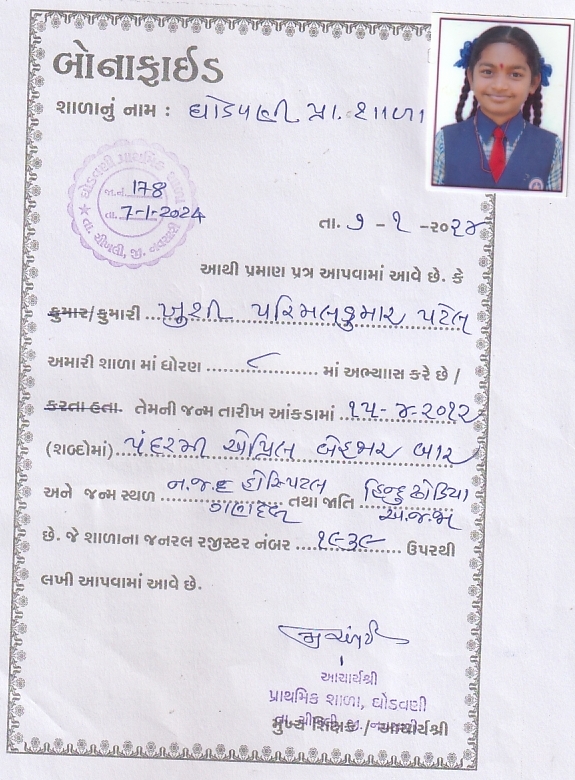 બોનાફાઈડ
શાળાનું નામ : ઘોડવણી પ્રા. શાળા
ઘોડવણી પ્રાથમિક શાળા
જા.નં. 178
તા. 7-1-2024
તા. ચીખલી, જી. નવસારી
તા. ૭ - ૧ - ૨૦૨૪
આથી પ્રમાણ પત્ર આપવામાં આવે છે. કે
કુમાર/કુમારી ખુશી પરિમલકુમાર પટેલ
અમારી શાળા માં ધોરણ ૮ માં અભ્યાસ કરે છે /
કરતા હતા. તેમની જન્મ તારીખ આંકડામાં ૧૫-૪-૨૦૧૨
(શબ્દોમાં) પંદરમી એપ્રિલ બેહજાર બાર
અને જન્મ સ્થળ ન.જ. દ હોસ્પિટલ તથા જાતિ હિન્દુ ધોડિયા
અ.જ.જા
છે. જે શાળાના જનરલ રજીસ્ટર નંબર ૧૯૩૯ ઉપરથી
લખી આપવામાં આવે છે.
આચાર્યશ્રી
પ્રાથમિક શાળા, ઘોડવણી
મુખ્ય શિક્ષક / આચાર્યશ્રી